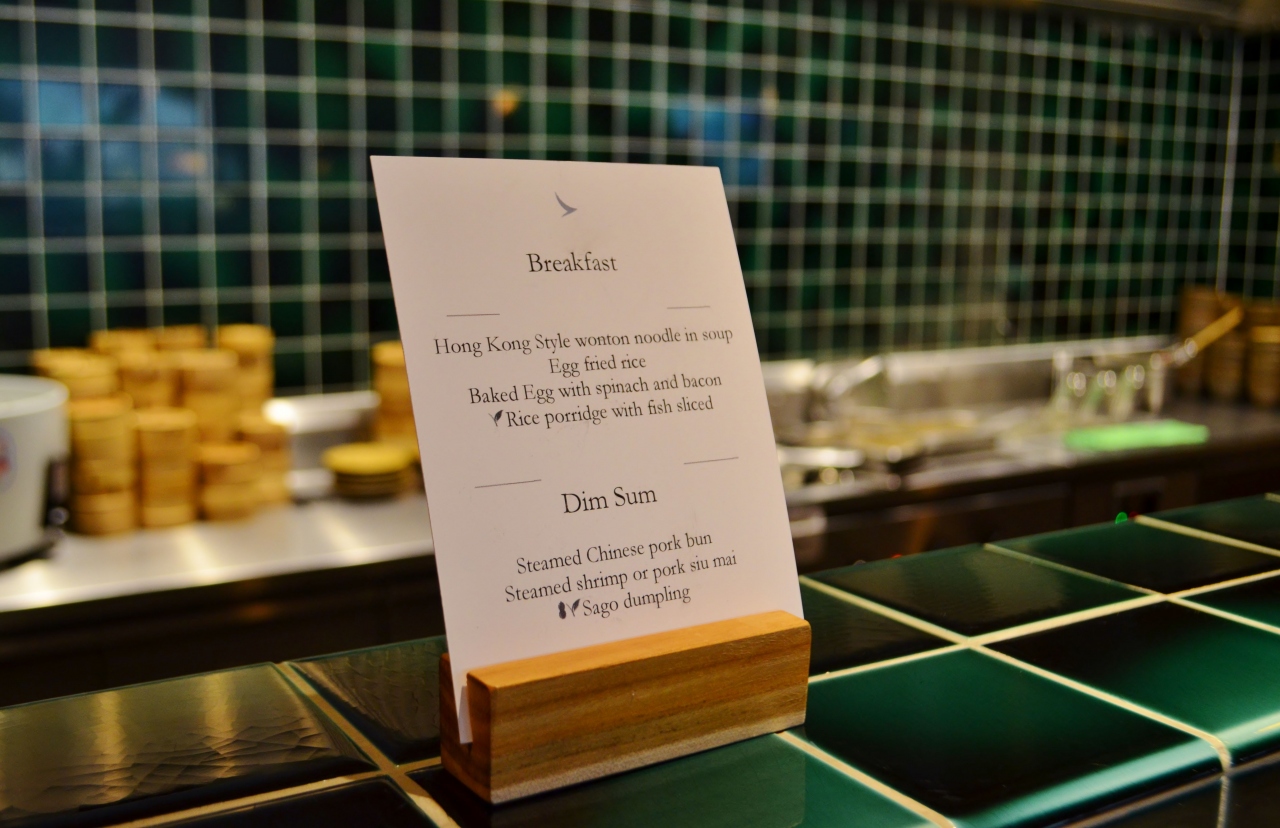 Breakfast
Hong Kong Style wonton noodle in soup
Egg fried rice
Baked Egg with spinach and bacon
Rice porridge with fish sliced
Dim Sum
Steamed Chinese pork bun
Steamed shrimp or pork siu mai
Sago dumpling